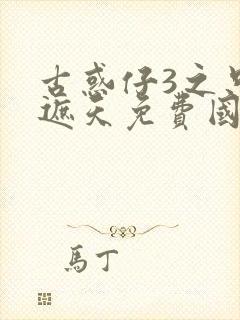 古惑仔3之只
遮天免費國
馬丁